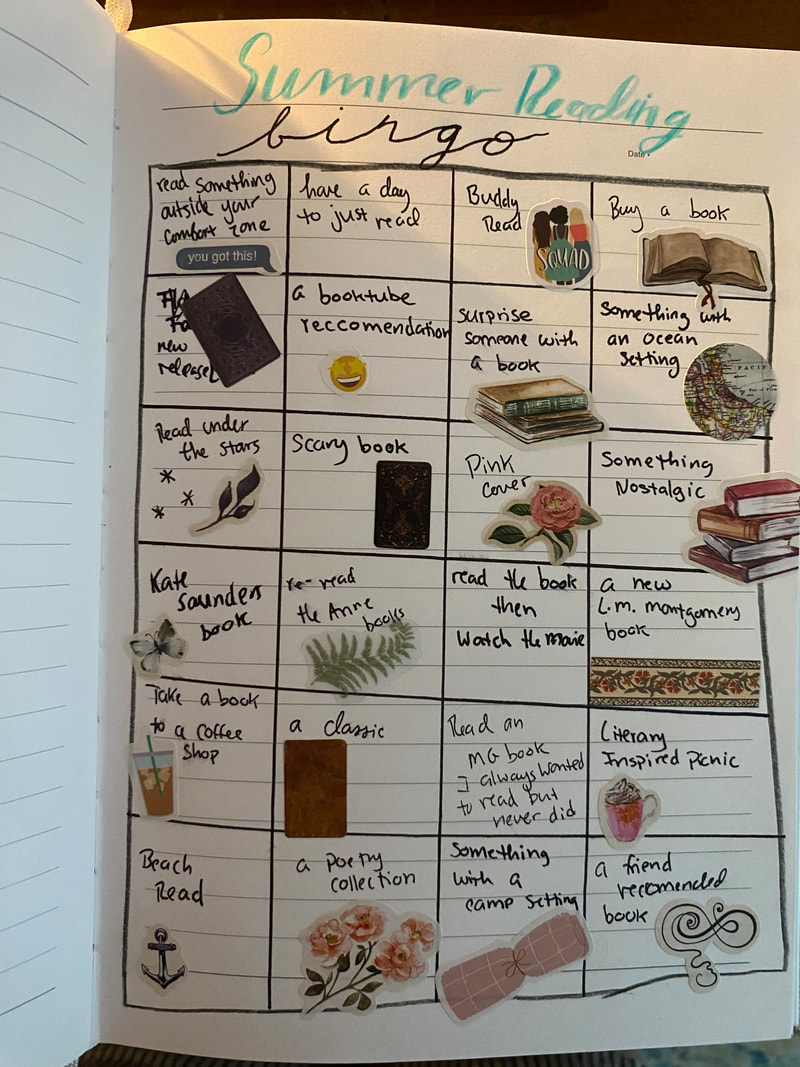 Summer Reading
bingo
Date
read something
outside your
comfort zone
you got this!
have a day
to just read
Buddy
Read
SQUAD
Buy a book
new
release
a booktube
reccomendation
surprise
someone with
a book
Something with
an ocean
setting
PACIF
Read under
the stars
Scary book
Pink
cover
Something
Nostalgic
Kate
Saunders
book
re-read
the Anne
books
read the book
then
watch the movie
a new
L.m. montgomery
book
Take a book
to a coffee
shop
a classic
Read an
MG book
I always wanted
to read but
never did
Literary
Inspired Picnic
Beach
Read
a poetry
collection
Something
with a
camp setting
a friend
reccomended
book